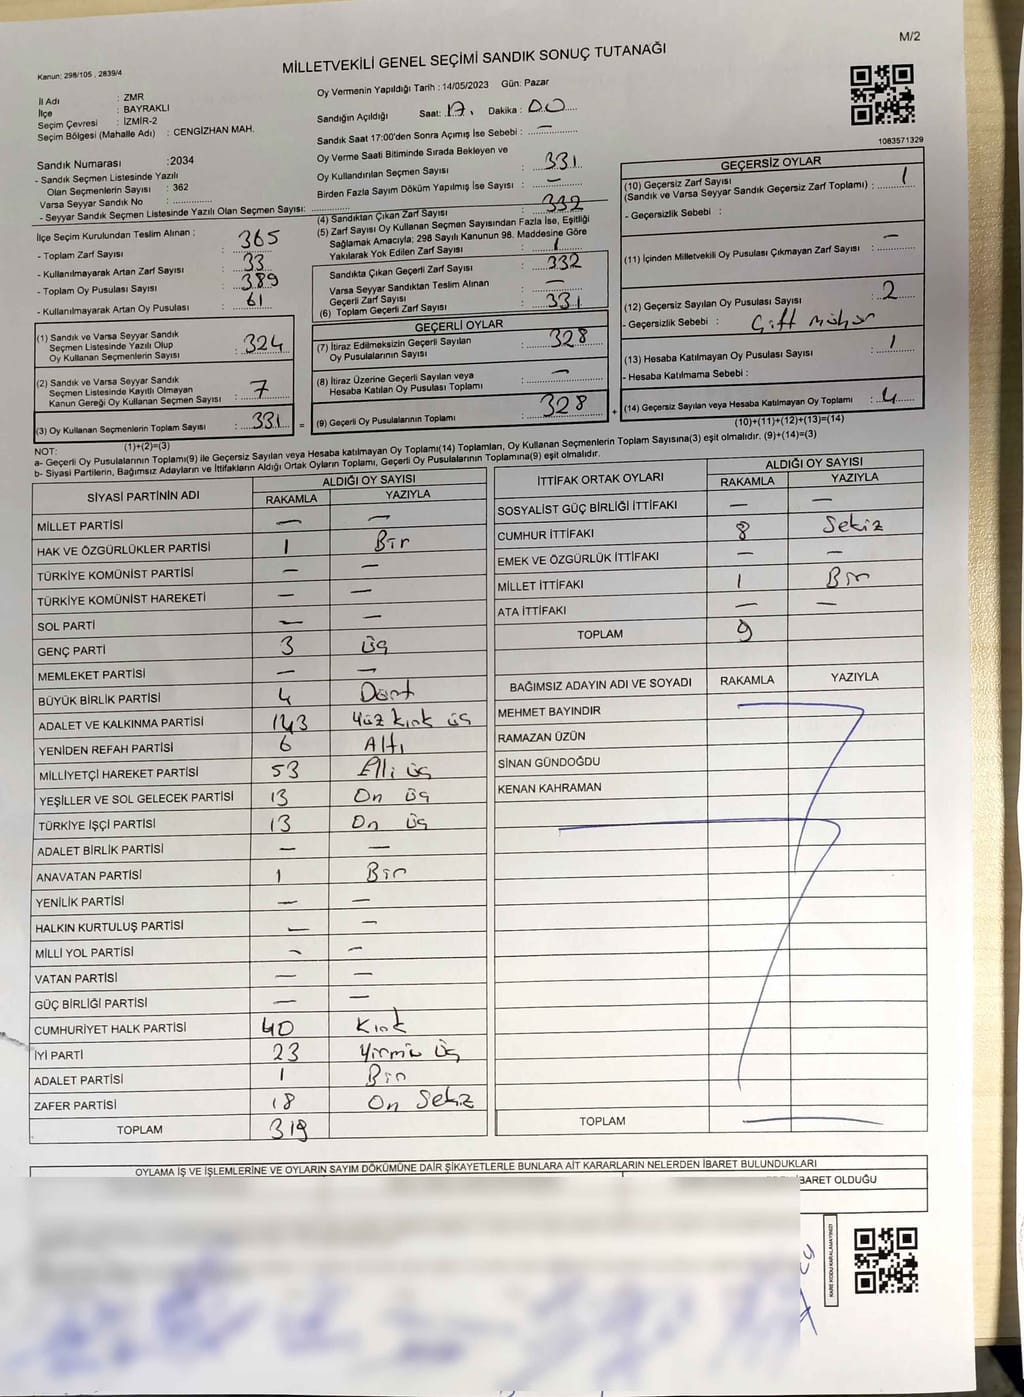 M/2
Kanun: 298/105 , 2839/4
MİLLETVEKİLİ GENEL SEÇİMİ SANDIK SONUÇ TUTANAĞI
İl Adı : ZMR
İlçe : BAYRAKLI
Seçim Çevresi : İZMİR-2
Seçim Bölgesi (Mahalle Adı) : CENGİZHAN MAH.
Sandık Numarası : 2034
- Sandık Seçmen Listesinde Yazılı
Olan Seçmenlerin Sayısı : 362
Varsa Seyyar Sandık No :
- Seyyar Sandık Seçmen Listesinde Yazılı Olan Seçmen Sayısı:
İlçe Seçim Kurulundan Teslim Alınan ;
- Toplam Zarf Sayısı : 365
- Kullanılmayarak Artan Zarf Sayısı : 33
- Toplam Oy Pusulası Sayısı : 389
- Kullanılmayarak Artan Oy Pusulası : 61
(1) Sandık ve Varsa Seyyar Sandık
Seçmen Listesinde Yazılı Olup
Oy Kullanan Seçmenlerin Sayısı : 324
(2) Sandık ve Varsa Seyyar Sandık
Seçmen Listesinde Kayıtlı Olmayan
Kanun Gereği Oy Kullanan Seçmen Sayısı : 7
(3) Oy Kullanan Seçmenlerin Toplam Sayısı : 331 =
(1)+(2)=(3)
Oy Vermenin Yapıldığı Tarih : 14/05/2023 Gün: Pazar
Sandığın Açıldığı Saat: 17. Dakika : 00
Sandık Saat 17:00'den Sonra Açımış İse Sebebi : —
Oy Verme Saati Bitiminde Sırada Bekleyen ve
Oy Kullandırılan Seçmen Sayısı : 331
Birden Fazla Sayım Döküm Yapılmış İse Sayısı : —
(4) Sandıktan Çıkan Zarf Sayısı : 332
(5) Zarf Sayısı Oy Kullanan Seçmen Sayısından Fazla İse, Eşitliği
Sağlamak Amacıyla; 298 Sayılı Kanunun 98. Maddesine Göre
Yakılarak Yok Edilen Zarf Sayısı : 1
Sandıkta Çıkan Geçerli Zarf Sayısı : 332
Varsa Seyyar Sandıktan Teslim Alınan
Geçerli Zarf Sayısı : —
(6) Toplam Geçerli Zarf Sayısı : 331
GEÇERLİ OYLAR
(7) İtiraz Edilmeksizin Geçerli Sayılan
Oy Pusulalarının Sayısı : 328
(8) İtiraz Üzerine Geçerli Sayılan veya
Hesaba Katılan Oy Pusulası Toplamı : —
(9) Geçerli Oy Pusulalarının Toplamı : 328 +
1083571329
GEÇERSİZ OYLAR
(10) Geçersiz Zarf Sayısı
(Sandık ve Varsa Seyyar Sandık Geçersiz Zarf Toplamı) : 1
- Geçersizlik Sebebi :
(11) İçinden Milletvekili Oy Pusulası Çıkmayan Zarf Sayısı : —
(12) Geçersiz Sayılan Oy Pusulası Sayısı : 2
- Geçersizlik Sebebi : Çift Mühür
(13) Hesaba Katılmayan Oy Pusulası Sayısı : 1
- Hesaba Katılmama Sebebi :
(14) Geçersiz Sayılan veya Hesaba Katılmayan Oy Toplamı : 4
(10)+(11)+(12)+(13)=(14)
NOT:
a- Geçerli Oy Pusulalarının Toplamı(9) ile Geçersiz Sayılan veya Hesaba katılmayan Oy Toplamı(14) Toplamları, Oy Kullanan Seçmenlerin Toplam Sayısına(3) eşit olmalıdır. (9)+(14)=(3)
b- Siyasi Partilerin, Bağımsız Adayların ve İttifakların Aldığı Ortak Oyların Toplamı, Geçerli Oy Pusulalarının Toplamına(9) eşit olmalıdır.
SİYASİ PARTİNİN ADI ALDIĞI OY SAYISI
RAKAMLA YAZIYLA
MİLLET PARTİSİ — —
HAK VE ÖZGÜRLÜKLER PARTİSİ 1 Bir
TÜRKİYE KOMÜNİST PARTİSİ — —
TÜRKİYE KOMÜNİST HAREKETİ — —
SOL PARTİ — —
GENÇ PARTİ 3 üç
MEMLEKET PARTİSİ — —
BÜYÜK BİRLİK PARTİSİ 4 Dört
ADALET VE KALKINMA PARTİSİ 143 Yüz kırk üç
YENİDEN REFAH PARTİSİ 6 Altı
MİLLİYETÇİ HAREKET PARTİSİ 53 Elli üç
YEŞİLLER VE SOL GELECEK PARTİSİ 13 On üç
TÜRKİYE İŞÇİ PARTİSİ 13 On üç
ADALET BİRLİK PARTİSİ — —
ANAVATAN PARTİSİ 1 Bir
YENİLİK PARTİSİ — —
HALKIN KURTULUŞ PARTİSİ — —
MİLLİ YOL PARTİSİ — —
VATAN PARTİSİ — —
GÜÇ BİRLİĞİ PARTİSİ — —
CUMHURİYET HALK PARTİSİ 40 Kırk
İYİ PARTİ 23 Yirmi üç
ADALET PARTİSİ 1 Bir
ZAFER PARTİSİ 18 On Sekiz
TOPLAM 319
İTTİFAK ORTAK OYLARI ALDIĞI OY SAYISI
RAKAMLA YAZIYLA
SOSYALİST GÜÇ BİRLİĞİ İTTİFAKI — —
CUMHUR İTTİFAKI 8 Sekiz
EMEK VE ÖZGÜRLÜK İTTİFAKI — —
MİLLET İTTİFAKI 1 Bir
ATA İTTİFAKI — —
TOPLAM 9
BAĞIMSIZ ADAYIN ADI VE SOYADI RAKAMLA YAZIYLA
MEHMET BAYINDIR
RAMAZAN ÜZÜN
SİNAN GÜNDOĞDU
KENAN KAHRAMAN
TOPLAM —
OYLAMA İŞ VE İŞLEMLERİNE VE OYLARIN SAYIM DÖKÜMÜNE DAİR ŞİKAYETLERLE BUNLARA AİT KARARLARIN NELERDEN İBARET BULUNDUKLARI
BARET OLDUĞU
KARE KODU KARALAMAYINIZ!